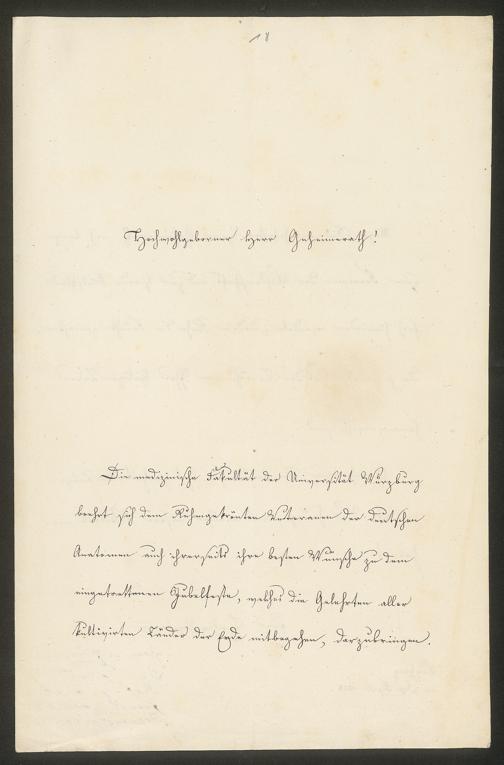 18
Hochwohlgeborner Herr Geheimerath!
Die medizinische Fakultät der Universität Würzburg
beehrt sich dem Ruhmgekrönten Veteranen der deutschen
Anatomen auch ihrerseits ihre besten Wünsche zu dem
eingetrettenen Jubelfeste, welches die Gelehrten aller
kultivirten Länder der Erde mitbegehen, darzubringen.